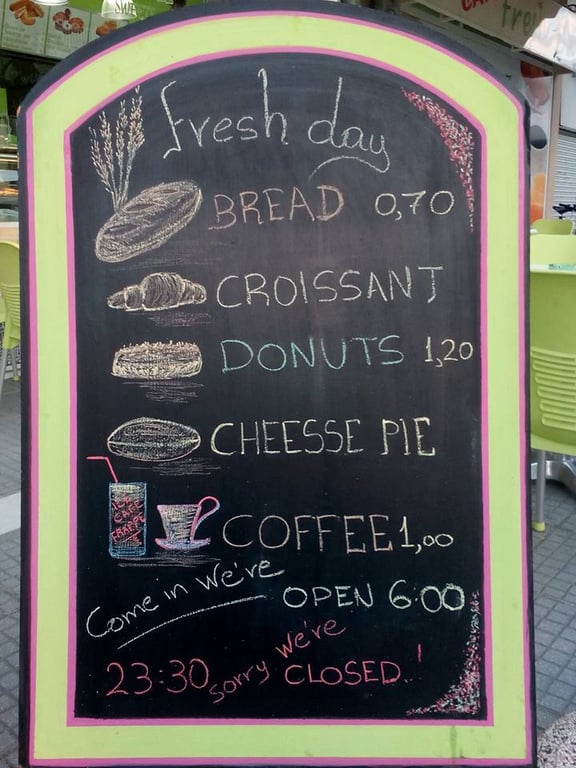 Fresh day
BREAD 0,70
CROISSANT
DONUTS 1,20
CHEESSE PIE
COFFEE 1,00
Come in We're
OPEN 6:00
23:30 sorry We're
CLOSED..!